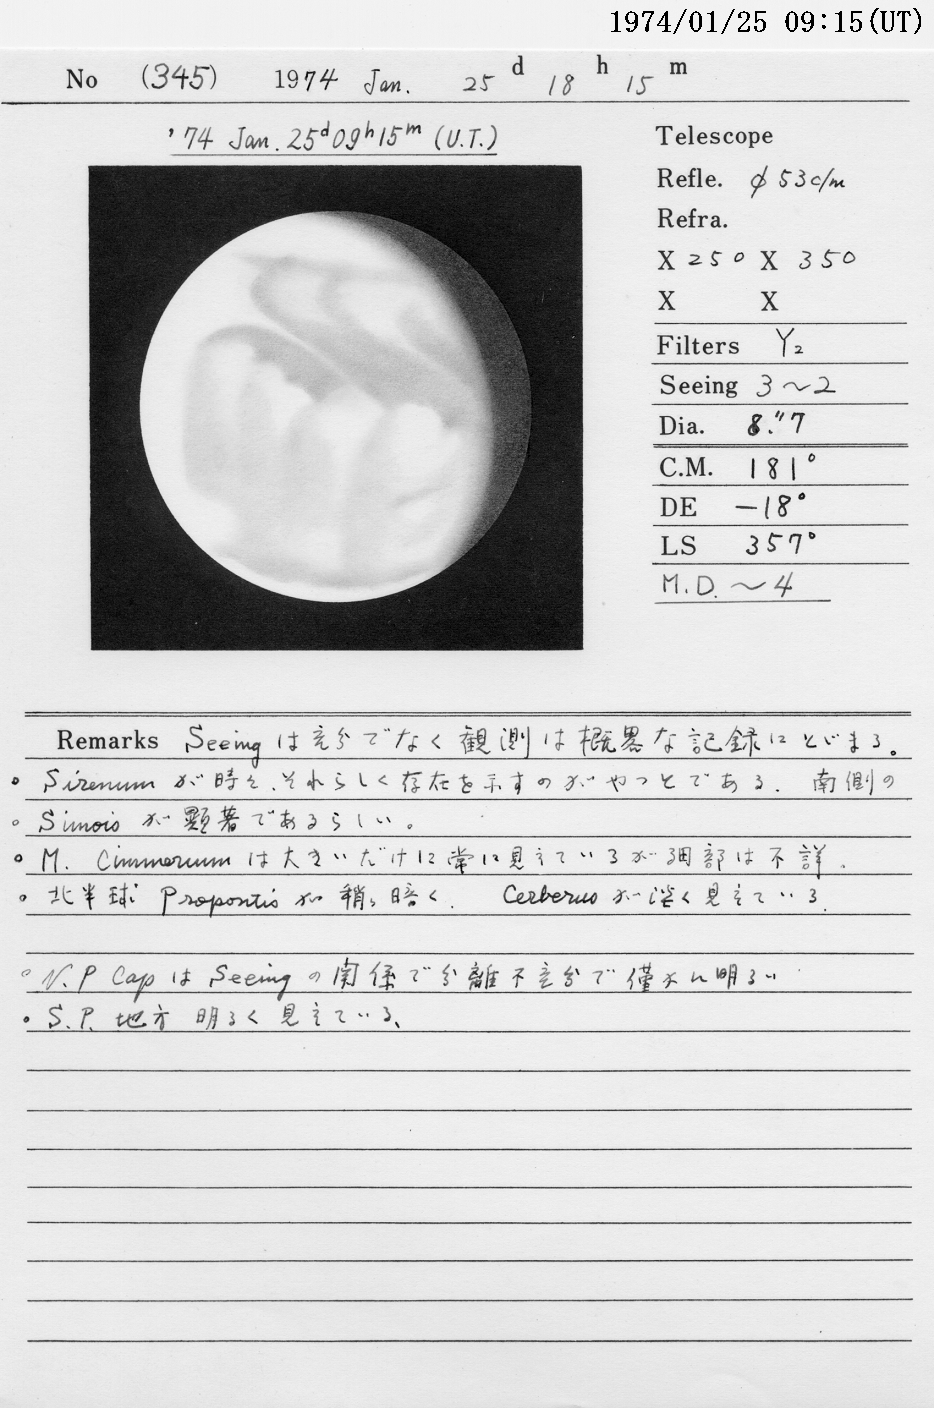 1974/01/25 09:15(UT)
No (345) 1974 Jan. 25 d 18 h 15 m
'74 Jan. 25d09h15m (U.T.)
Telescope
Refle. φ 53c/m
Refra.
X 250 X 350
X X
Filters Y2
Seeing 3~2
Dia. 8."7
C.M. 181°
DE -18°
LS 357°
M.D. ~4
Remarks Seeingは充分でなく観測は概略な記録にとどまる。
○ Sirenumが時々、それらしく存在を示すのがやっとである. 南側の
○ Simoisが顕著であるらしい。
○ M. Cimmeriumは大きいだけに常に見えているが細部は不詳.
○ 北半球 Propontisが稍々暗く. Cerberusが淡く見えている.
○ N.P CapはSeeingの関係で分離不充分で僅かに明るい
○ S.P. 地方 明るく見えている、